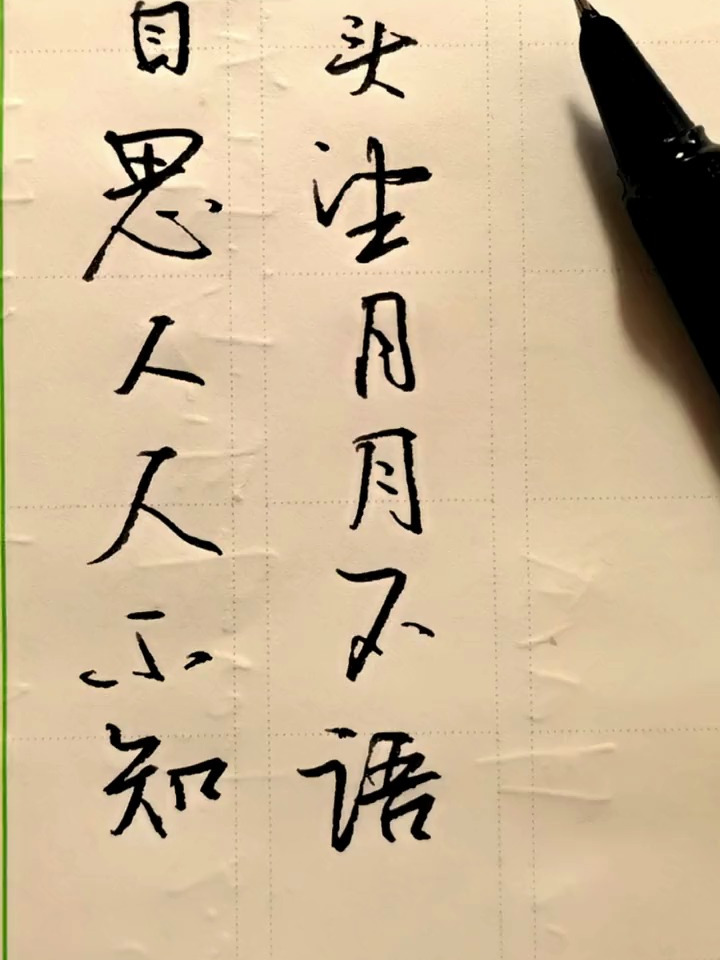 头望月月不语
目思人人不知